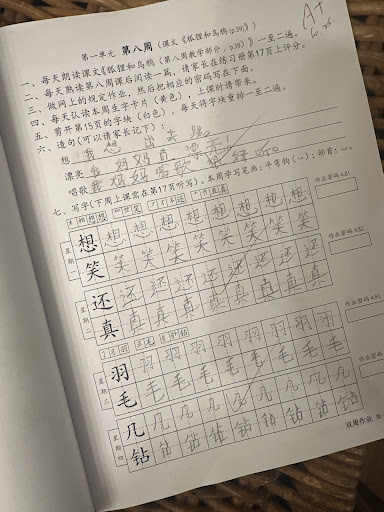 第一单元 第八周(课文《狐狸和乌鸦(p.39)》)
A+
一、每天朗读课文《狐狸和乌鸦(第八周教学部分,p.39)》一至二遍。
二、每天熟读第八周课后阅读一篇,请家长在练习册第17页上评分。
三、做网上的规定作业,然后把相应的密码写在下面。
四、每天认读本周生字卡片(黄色),上课时请带来。
五、剪开第15页的字块(白色),每天将字块重排一至二遍。
六、造句(可以请家长记下):
想 我想出去跑。
漂亮 我妈妈真漂亮!
唱歌 我妈妈唱歌很好听。
七、写字(下周上课需在第17页听写)。本周学写笔画:
星期一
想 想 想 想 想 想 想 想
笑 笑 笑 笑 笑 笑 笑 笑
作业密码4.8.1
星期二
还 还 还 还 还 还 还 还
真 真 真 真 真 真 真 真
作业密码4.8.2
星期三
羽 羽 羽 羽 羽 羽 羽 羽
毛 毛 毛 毛 毛 毛 毛 毛
作业密码4.8.3
星期四
凡 凡 凡 凡 凡 凡 凡 凡
钻 钻 钻 钻 钻 钻 钻 钻
双周作业